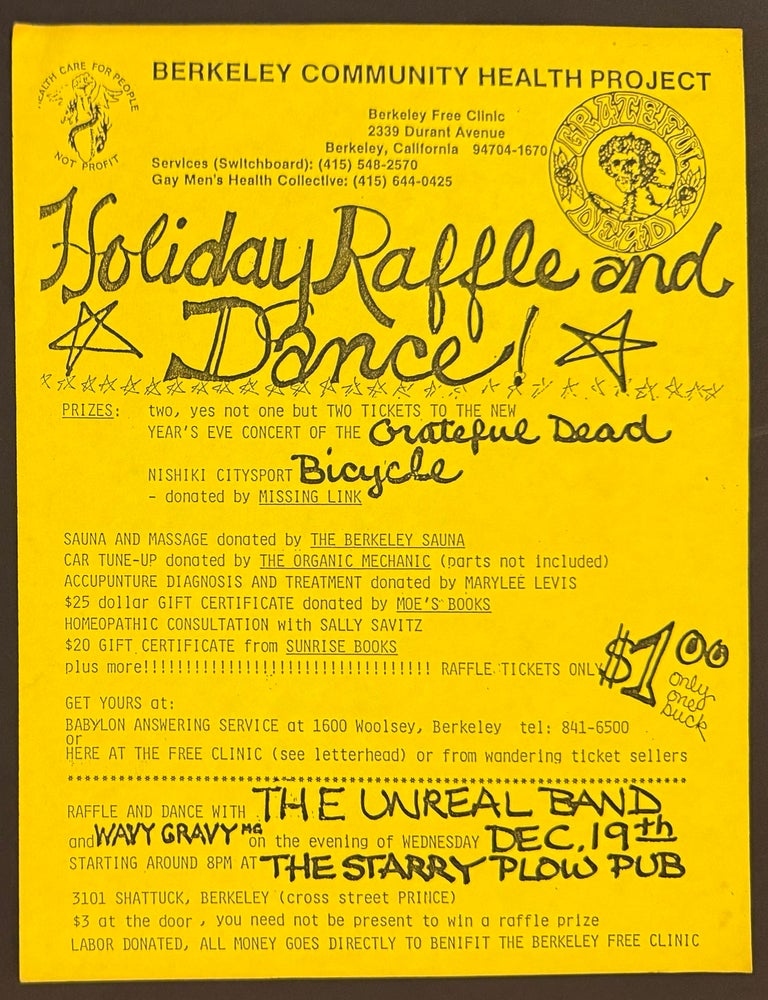 HEALTH CARE FOR PEOPLE
NOT PROFIT
BERKELEY COMMUNITY HEALTH PROJECT
Berkeley Free Clinic
2339 Durant Avenue
Berkeley, California 94704-1670
Services (Switchboard): (415) 548-2570
Gay Men's Health Collective: (415) 644-0425
GRATEFUL
DEAD
Holiday Raffle and
Dance!
PRIZES: two, yes not one but TWO TICKETS TO THE NEW
YEAR'S EVE CONCERT OF THE Grateful Dead
NISHIKI CITYSPORT Bicycle
- donated by MISSING LINK
SAUNA AND MASSAGE donated by THE BERKELEY SAUNA
CAR TUNE-UP donated by THE ORGANIC MECHANIC (parts not included)
ACCUPUNTURE DIAGNOSIS AND TREATMENT donated by MARYLEE LEVIS
$25 dollar GIFT CERTIFICATE donated by MOE'S BOOKS
HOMEOPATHIC CONSULTATION with SALLY SAVITZ
$20 GIFT CERTIFICATE from SUNRISE BOOKS
plus more!!!!!!!!!!!!!!!!!!!!!!!!!!!!!!!!! RAFFLE TICKETS ONLY $1.00
only
one
buck
GET YOURS at:
BABYLON ANSWERING SERVICE at 1600 Woolsey, Berkeley tel: 841-6500
or
HERE AT THE FREE CLINIC (see letterhead) or from wandering ticket sellers
RAFFLE AND DANCE WITH THE UNREAL BAND
and WAVY GRAVY MC on the evening of WEDNESDAY DEC. 19th
STARTING AROUND 8PM AT THE STARRY PLOW PUB
3101 SHATTUCK, BERKELEY (cross street PRINCE)
$3 at the door, you need not be present to win a raffle prize
LABOR DONATED, ALL MONEY GOES DIRECTLY TO BENIFIT THE BERKELEY FREE CLINIC